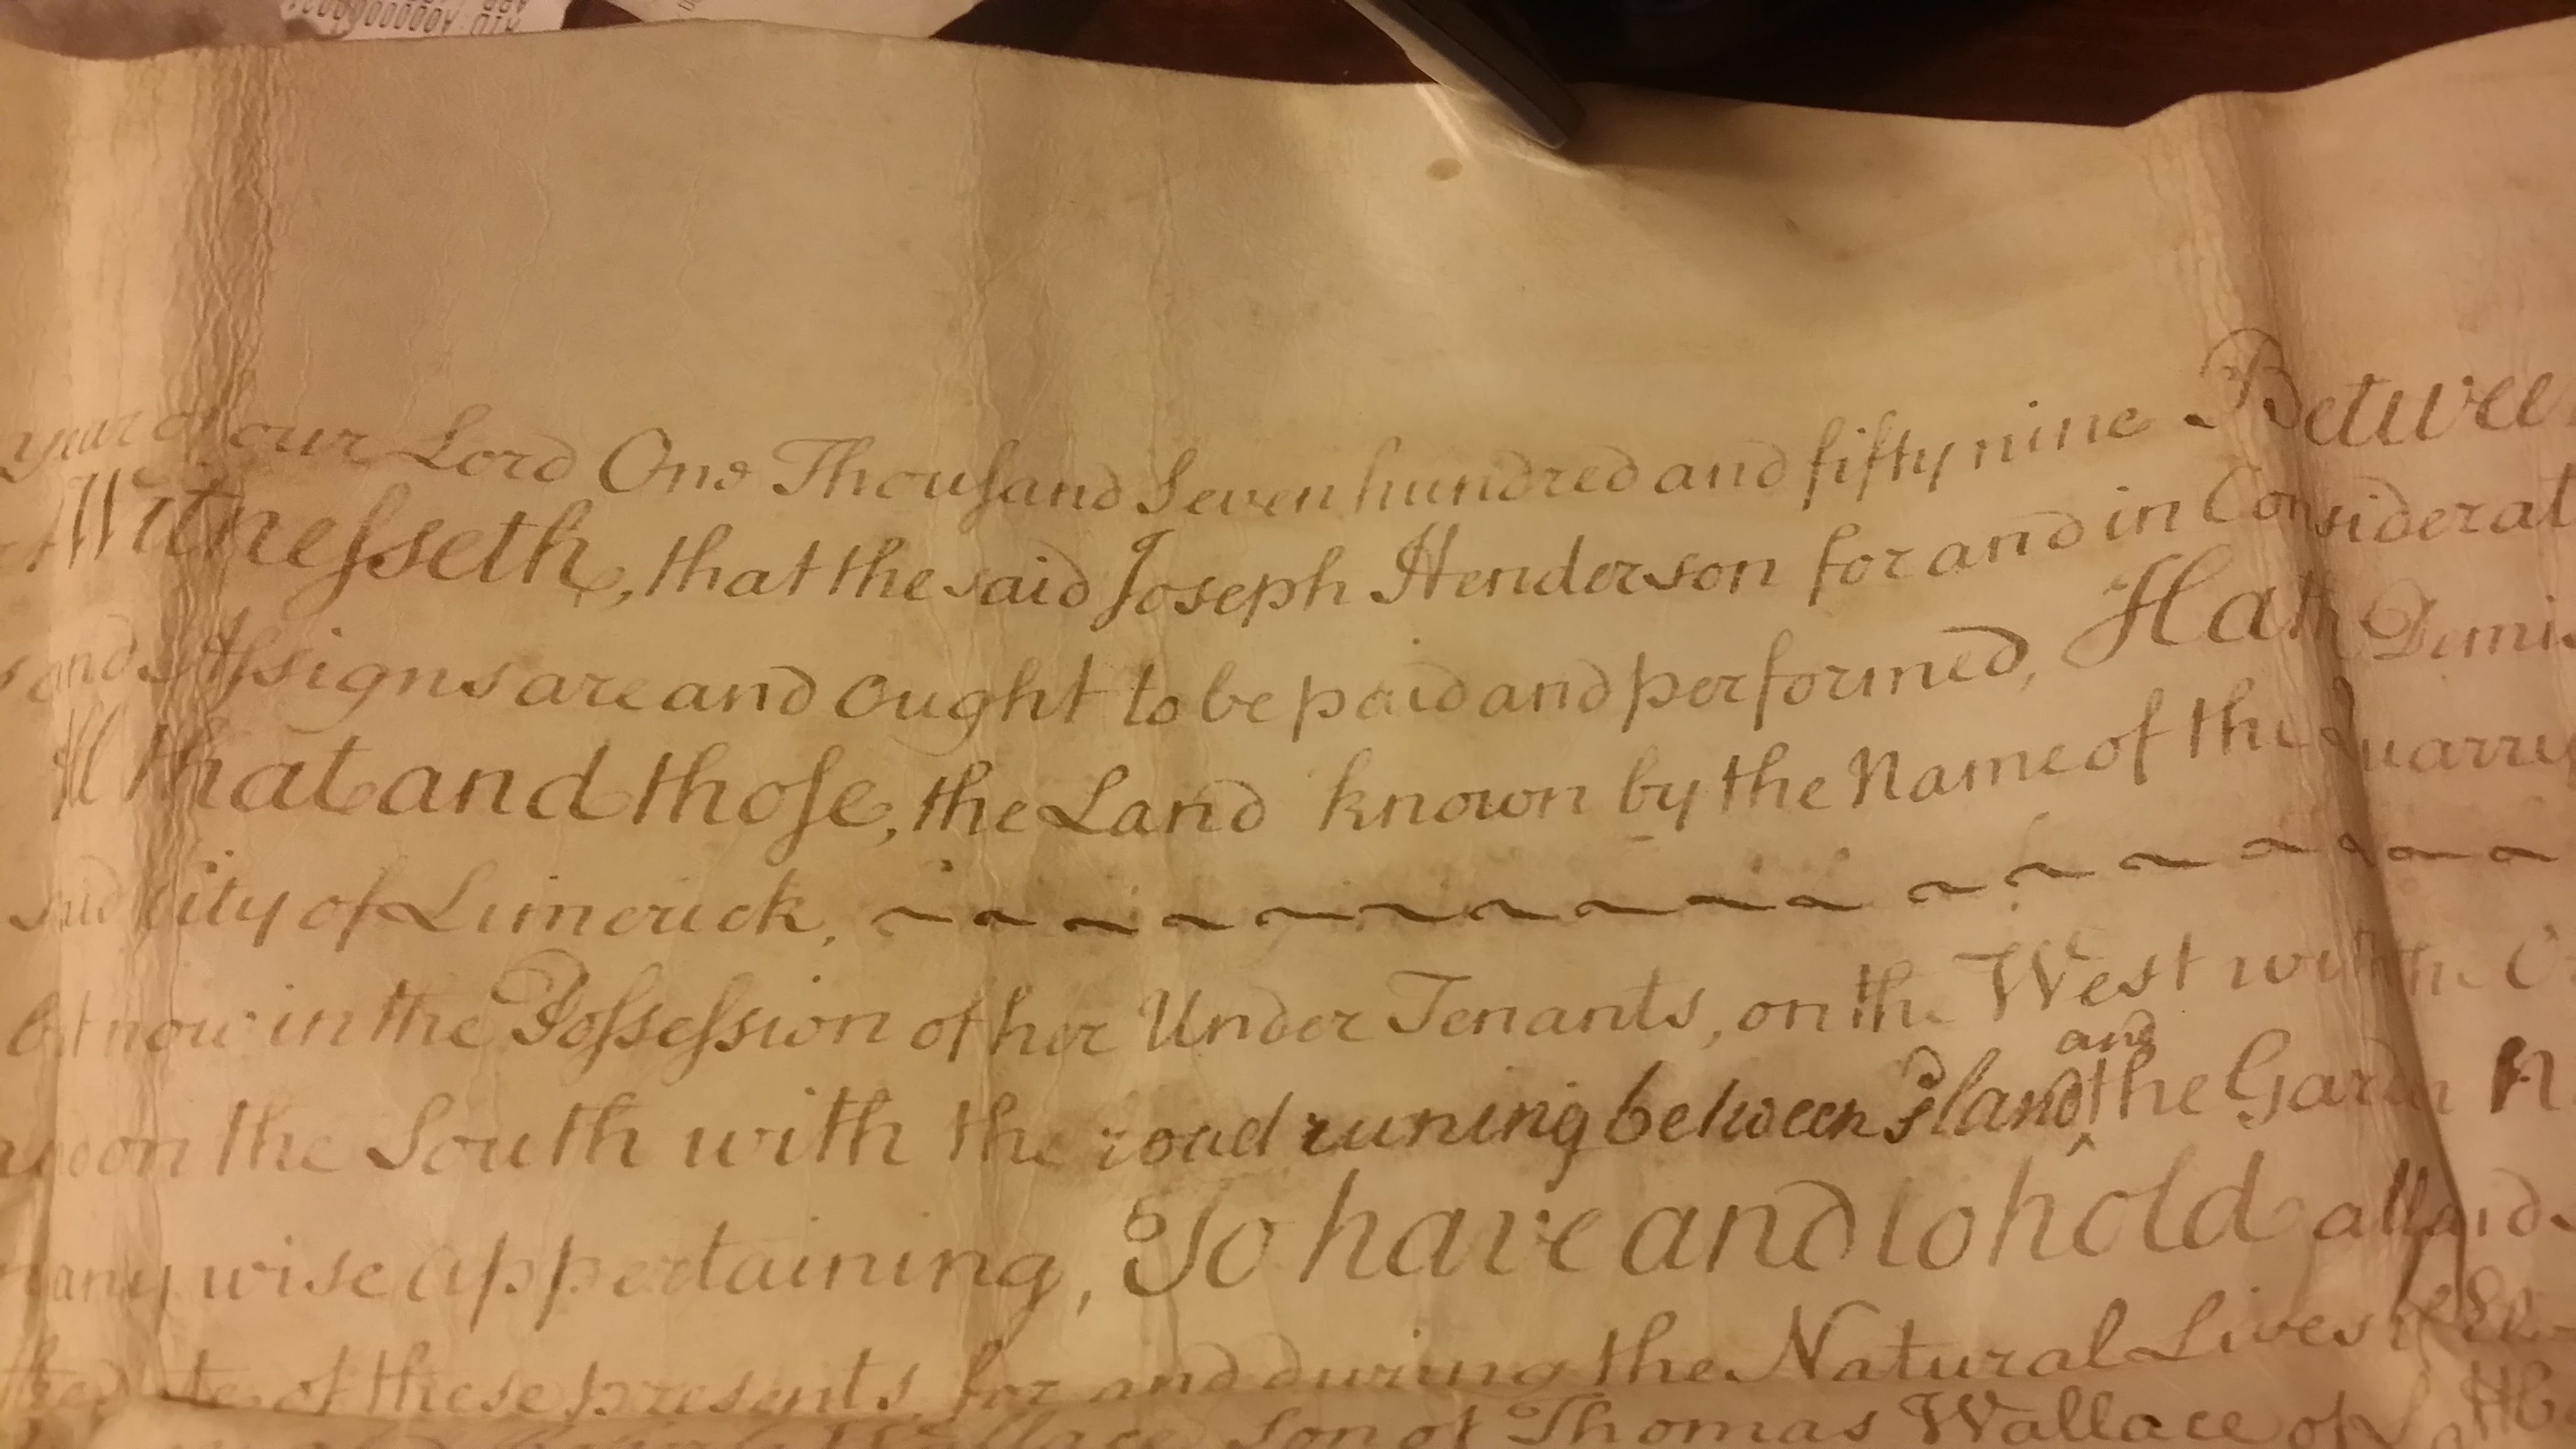 year of our Lord One Thouſand Seven hundred and fifty nine Betwee
Witneſseth, that the said Joseph Henderson for and in Considerat
and Aſsigns are and ought to be paid and performed, Hath Demis
All that and thoſe, the Land known by the Name of the Quarry
said City of Limerick,
now in the Poſseſsion of her Under Tenants, on the West with the
on the South with the road runing between sd land ^and the Garden
any wise appertaining, To have and to hold all
the date of these presents for and during the Natural Lives of
Wallace Son of Thomas Wallace of